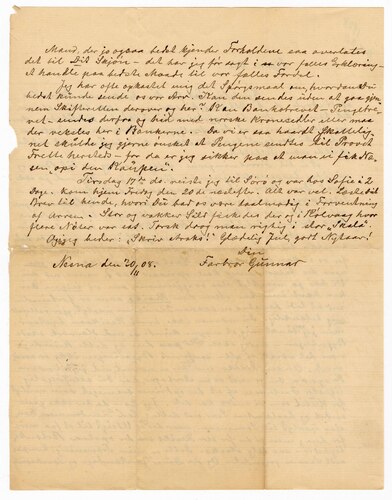 Mand, der jo ogsaa bedst kjender Forholdene saa overlates
det til Dit Skjøn - det har jeg før sagt i vor fælles Erklæring -
at handle paa bedste Maade til vor fælles Fordel.
Jeg har ofte opkastet mig det Spørgsmaal om, hvordan du
bedst kunde sende os vor Arv. Kan den sendes uden at gaa gjen-
nem Skifteretten derover og her? Kan Bankobrevet -
vet - sendes derfra og hid med norske Kronesedler eller maa
der veksles her i Bankerne. Da vi er saa haardt Skattelig-
net skulde jeg gjerne ønsket at Pengene sendtes til Provst
Frette hersteds - for da er jeg sikker paa at man vi fik Næ-
sen opi den
Tirsdag 17de ds. reiste jeg til Sørö og var hos Sofie i 2
Dage. Kom hjem Fredag den 20de næstefter. Alt var vel. Læste dit
Brev til hende, hvori Du bad os være taalmodig i Forventning
af Arven. Stor og vakker Sild fiskedes der og i hvor
flere Nöter var sat. Torsk drog man rigtig i stor "Skala".
Og jeg beder: "Skriv straks!" Glædelig Jul, godt Nytaar!
Din
Nesna den 20/11 08. Farbror Gunnar